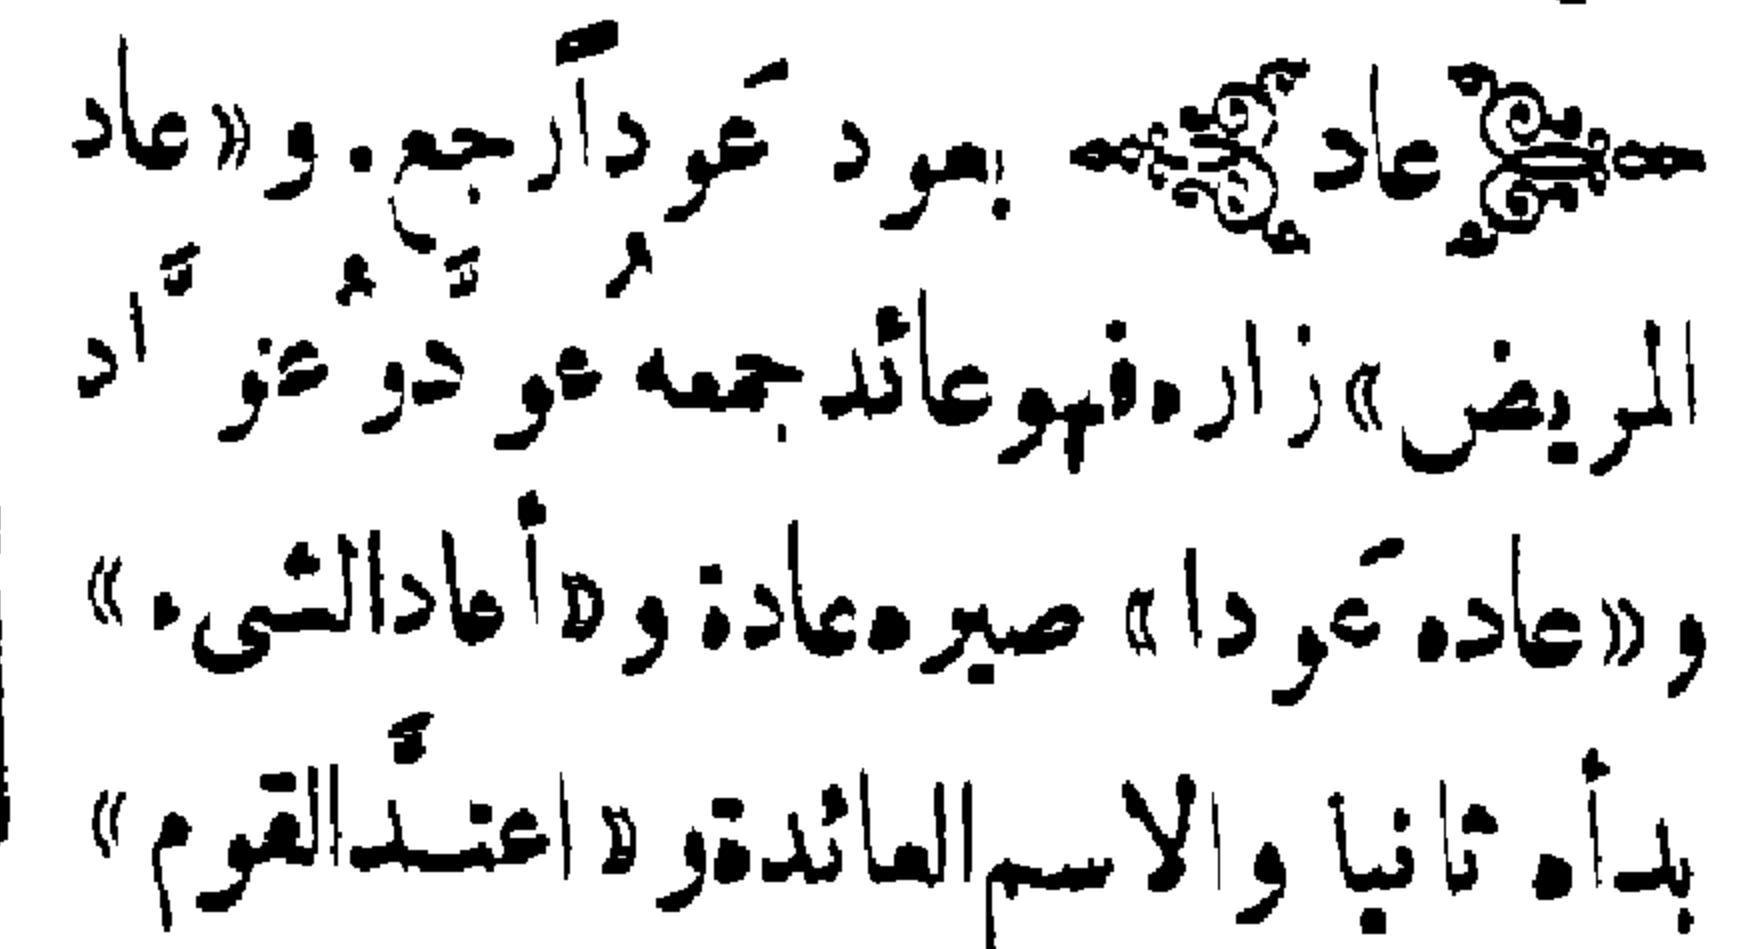 ﴿ عاد ﴾ يعود عَوداً رجع . و « عاد
المريض » زاره فهو عائد جمعه عُوَّد وعُوَّاد
و « عاده عَودا » صيره عادة و « أعاد الشىء »
بدأه ثانيا والاسم العائدة و « اعتدَّ القوم »